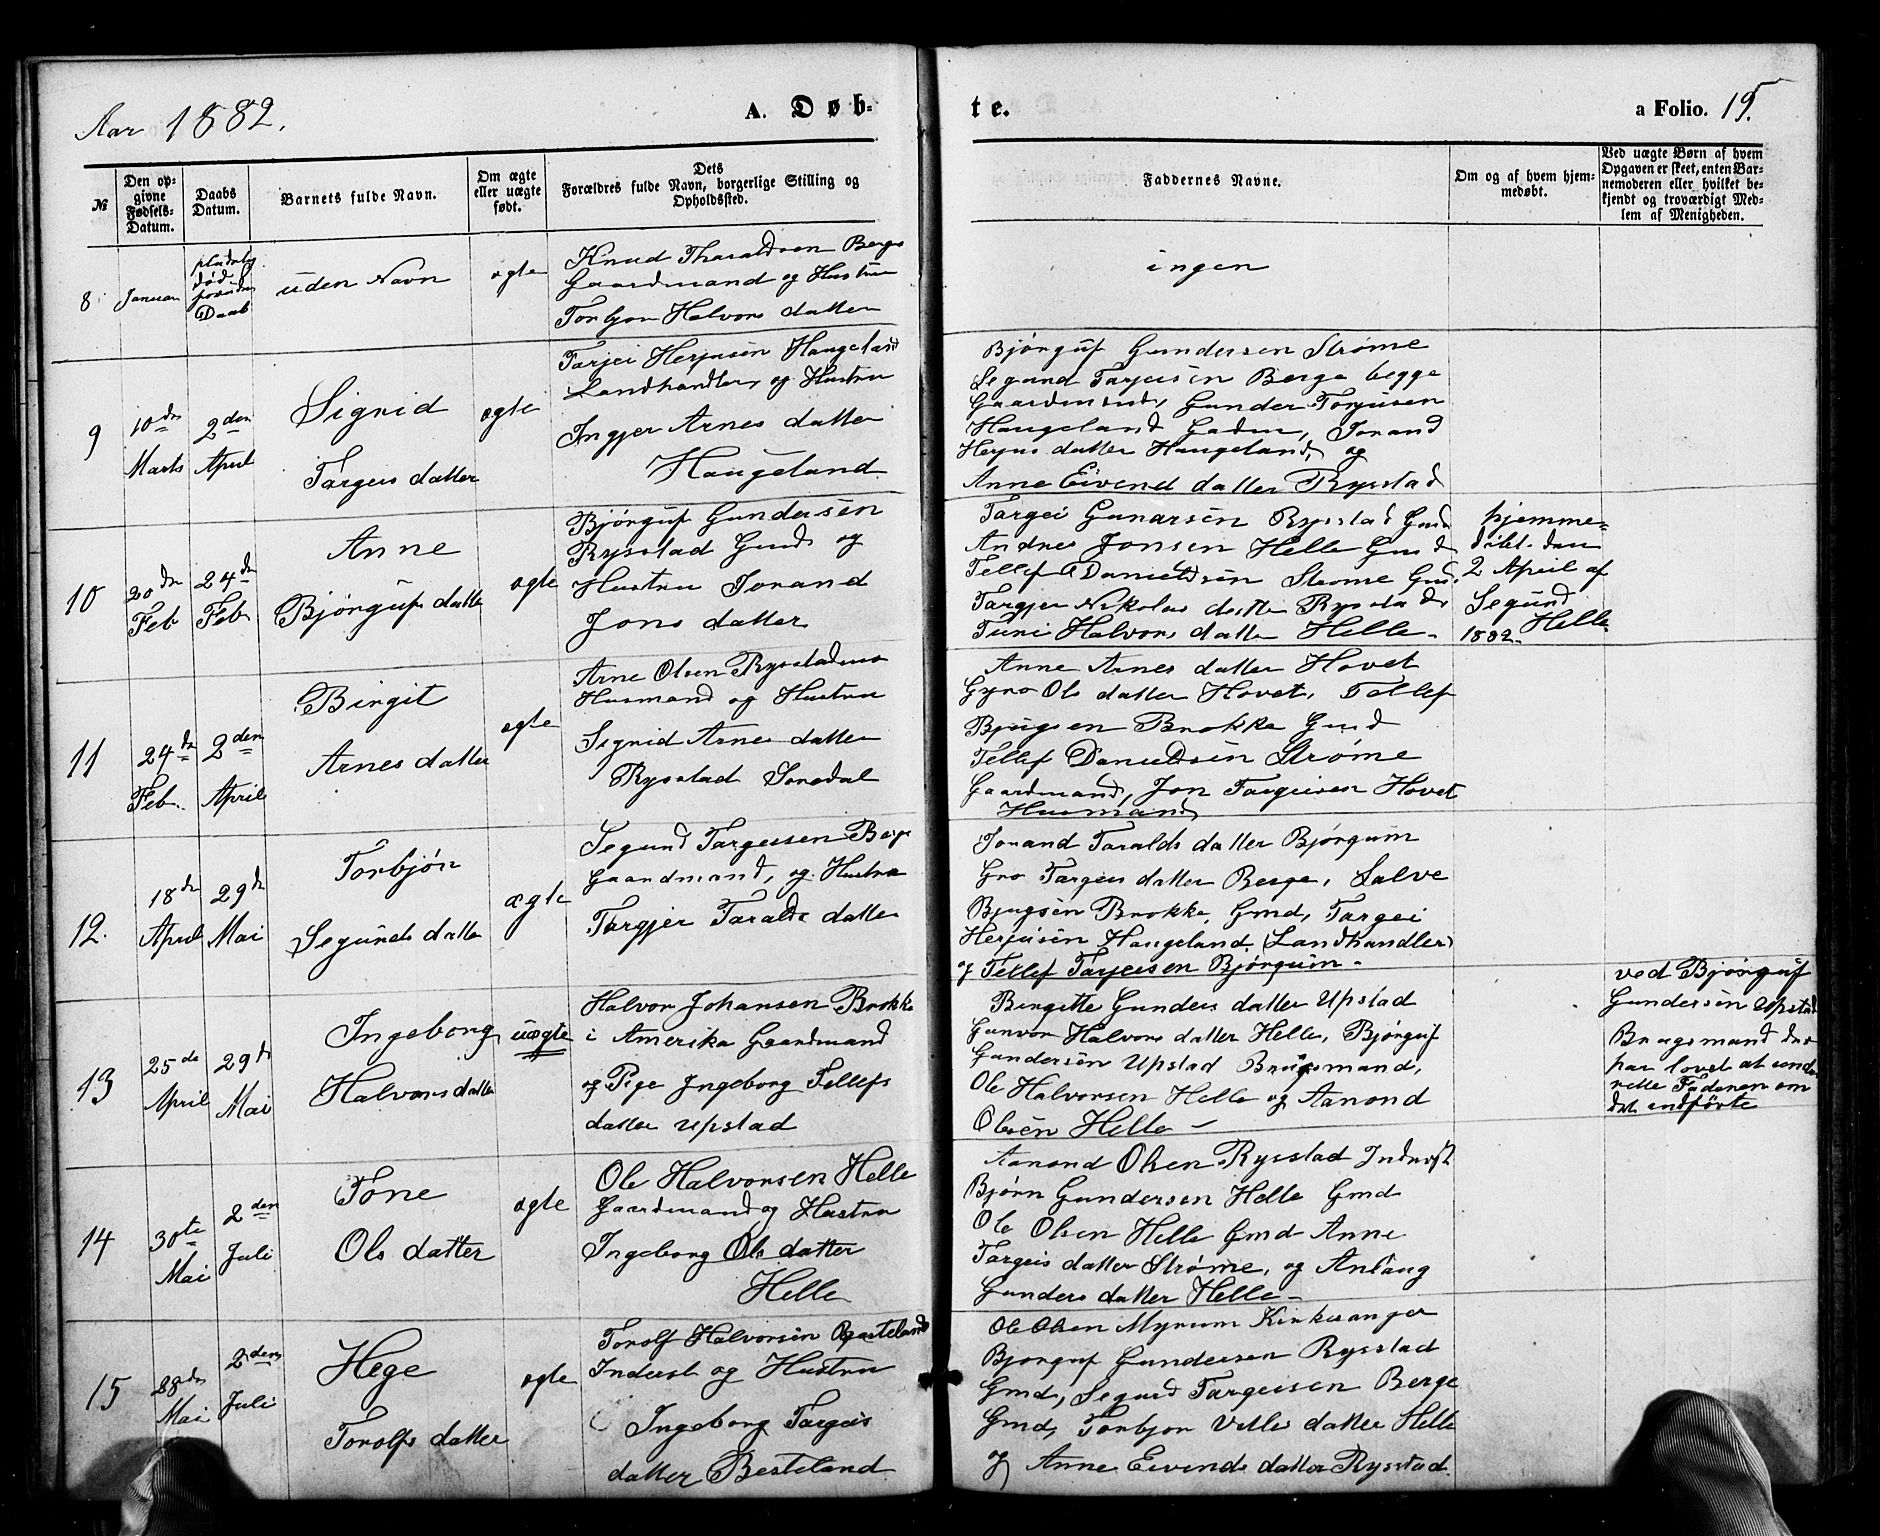 Aar 1882.
A. Døb-
te.
a Folio. 15.
№
Den op-
givne
Fødsels-
Datum.
Daabs
Datum.
Barnets fulde Navn.
Om ægte
eller uægte
født.
Dets
Forældres fulde Navn, borgerlige Stilling og
Opholdssted.
Faddernes Navne.
Om og af hvem hjem-
medøbt.
Ved uægte Børn af hvem
Opgaven er skeet, enten Bar-
nemoderen eller hvilket be-
kjendt og troværdigt Med-
lem af Menigheden.
8
Januar
død
Daab
uden Navn
ægte
Knud Tharaldsen Berge
Gaardmand og Hustru
Torbjør Halvors datter
ingen
9
10de
Marts
2den
April
Sigrid
Targeis datter
ægte
Tarjei Herjusen Haugeland
Landhandler, og Hustru
Ingjer Arnes datter
Haugeland
Bjørguf Gundersen Strøme
Segund Tarjeisen Berge begge
Gaardmænd, Gunder Torjusen
Haugeland, Jorand
Herjus datter Haugeland, og
Anne Eivend datter Rysstad
10
20de
Feb
24de
Feb
Anne
Bjørgufs datter
ægte
Bjørguf Gundersen
Rysstad Gmd og
Hustru Jorand
Jons datter
Targei Gunarsen Rysstad Gmd
Andres Jonsen Helle Gmd
Tellef Danielsen Strøme Gmd.
Targjer Nikolas datter Rysstad
Turi Halvors datter Helle.
hjemme-
døbt den
2 April af
Segund
1882. Helle.
11
24de
Feb.
2den
April
Birgit
Arnes datter
ægte
Arne Olsen Rysstadmo
Husmand og Hustru
Sigrid Arnes datter
Rysstad
Anne Arnes datter Hovet
Gyro Ols datter Hovet, Tellef
Bjugsen Brokke Gmd
Tellef Danielsen Strøme
Gaardmand, Jon Targeisen Hovet
Husmand
12.
18de
April
29de
Mai
Torbjør
Segunds datter
ægte
Segund Targeisen Berge
Gaardmand, og Hustru
Targjer Taralds datter
Jorand Taralds datter Bjørgum
Gro Targeis datter Berge, Salve
Bjugsen Brokke, Gmd, Targei
Herjusen Haugeland (Landhandler)
og Tellef Tarjeisen Bjørgum.
13
25de
April
29de
Mai
Ingeborg
Halvors datter
uægte
Halvor Johansen Brokke
i Amerika Gaardmand
og Pige Ingeborg Tellefs
datter Upstad
Birgitte Gunders datter Upstad
Gunvor Halvors datter Helle, Bjørguf
Gundersen Upstad Brugsmand,
Ole Halvorsen Helle og Aanond
Olsen Helle
ved Bjørguf
Gundersen Upstad
Brugsmand der
har lovet at under
rette Faderen om
det indførte
14
30te
Mai
2den
Juli
Tone
Ols datter
ægte
Ole Halvorsen Helle
Gaardmand og Hustru
Ingeborg Ols datter
Helle
Aanond Olsen Rysstad Inderst
Bjørn Gundersen Helle Gmd
Ole Olsen Helle Gmd Anne
Targeis datter Strøme, og Anlaug
Gunders datter Helle
15
28de
Mai
2den
Juli
Hege
Torolfs datter
ægte
Torolf Halvorsen Besteland
Inderst og Hustru
Ingeborg Targeis
datter Besteland
Ole Olsen Myrum Kirkesanger
Bjørguf Gundersen Rysstad
Gmd, Segund Targeisen Berge
Gmd, Torbjør Vetles datter Helle
og Anne Eivends datter Rysstad.